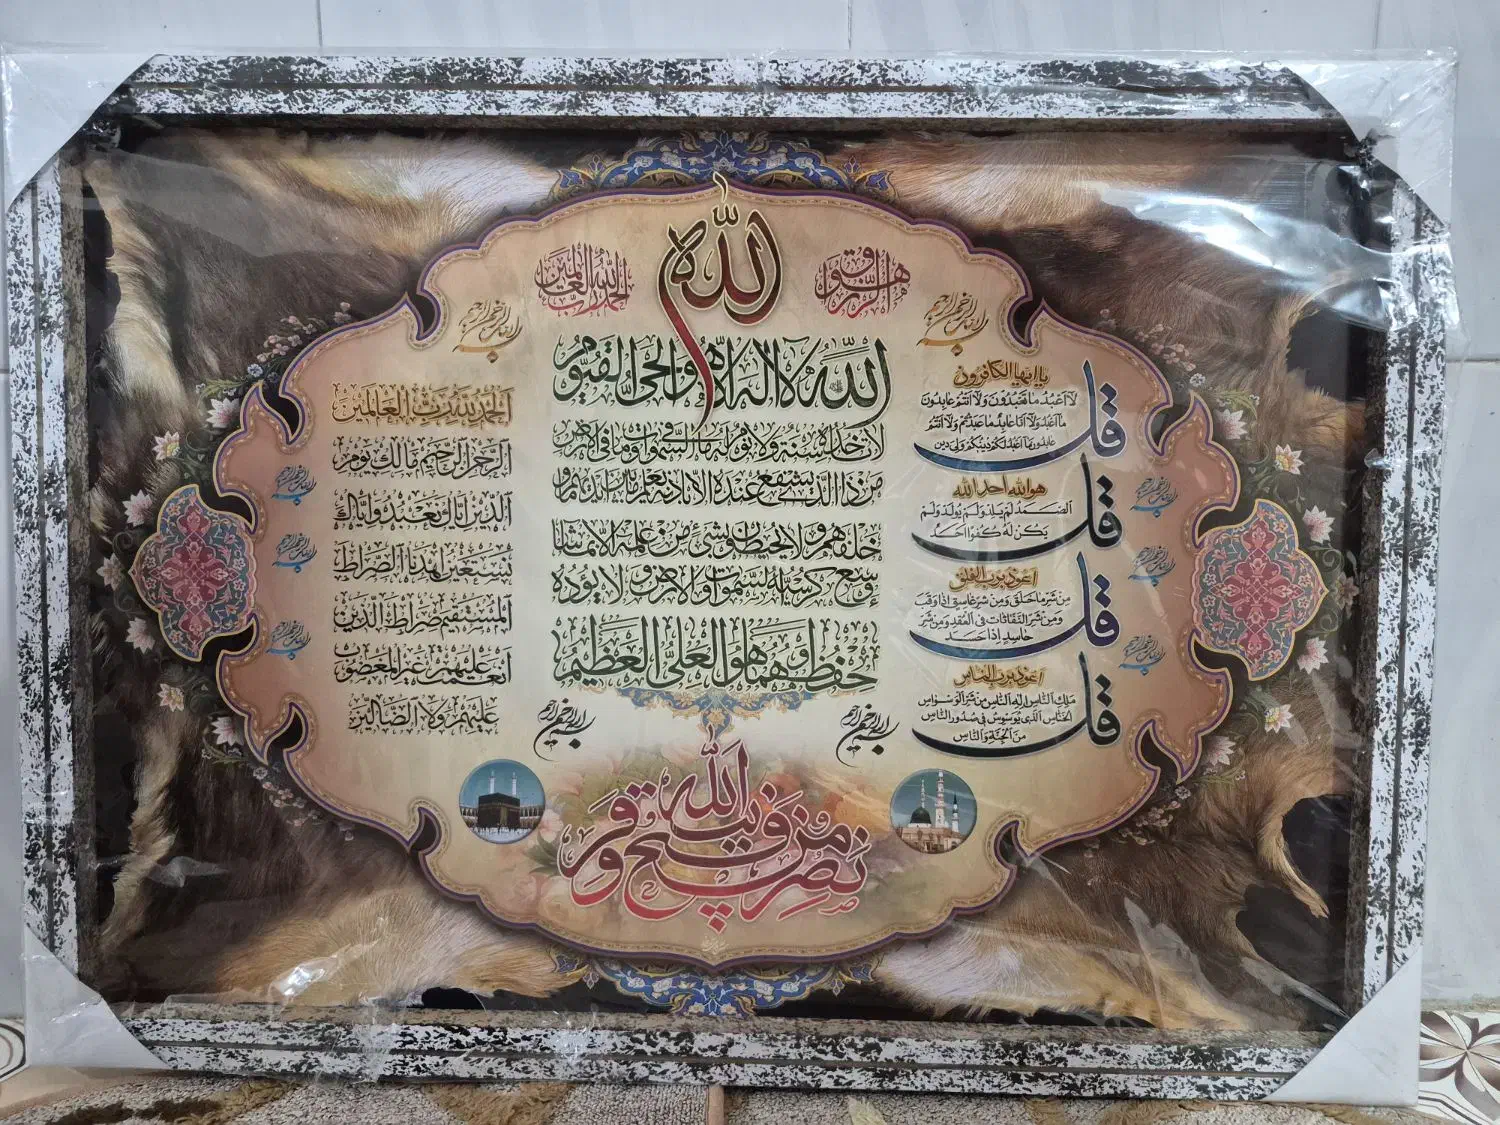 الله
هو الرزاق
الحمد لله رب العالمين
بسم الله الرحمن الرحيم
بسم الله الرحمن الرحيم
الله لا اله الا هو الحي القيوم
لا تأخذه سنة ولا نوم له ما في السموات وما في الارض
من ذا الذي يشفع عنده الا باذنه يعلم ما بين ايديهم وما
خلفهم ولا يحيطون بشئ من علمه الا بما شاء
وسع كرسيه السموات والارض ولا يؤده
حفظهما وهو العلي العظيم
قل
يا ايها الكافرون
لا اعبد ما تعبدون ولا انتم عابدون
ما اعبد ولا انا عابد ما عبدتم ولا انتم
عابدون ما اعبد لكم دينكم ولي دين
قل
هو الله احد الله
الصمد لم يلد ولم يولد ولم
يكن له كفوا احد
قل
اعوذ برب الفلق
من شر ما خلق ومن شر غاسق اذا وقب
ومن شر النفاثات في العقد ومن شر
حاسد اذا حسد
قل
اعوذ برب الناس
ملك الناس اله الناس من شر الوسواس
الخناس الذي يوسوس في صدور الناس
من الجنة والناس
بسم الله الرحمن الرحيم
بسم الله الرحمن الرحيم
بسم الله الرحمن الرحيم
الحمد لله رب العالمين
الرحمن الرحيم مالك يوم
الدين اياك نعبد واياك
نستعين اهدنا الصراط
المستقيم صراط الذين
انعمت عليهم غير المغضوب
عليهم ولا الضالين
بسم الله الرحمن الرحيم
بسم الله الرحمن الرحيم
بسم الله الرحمن الرحيم
بسم الله الرحمن الرحيم
بسم الله الرحمن الرحيم
نصر من الله وفتح قريب